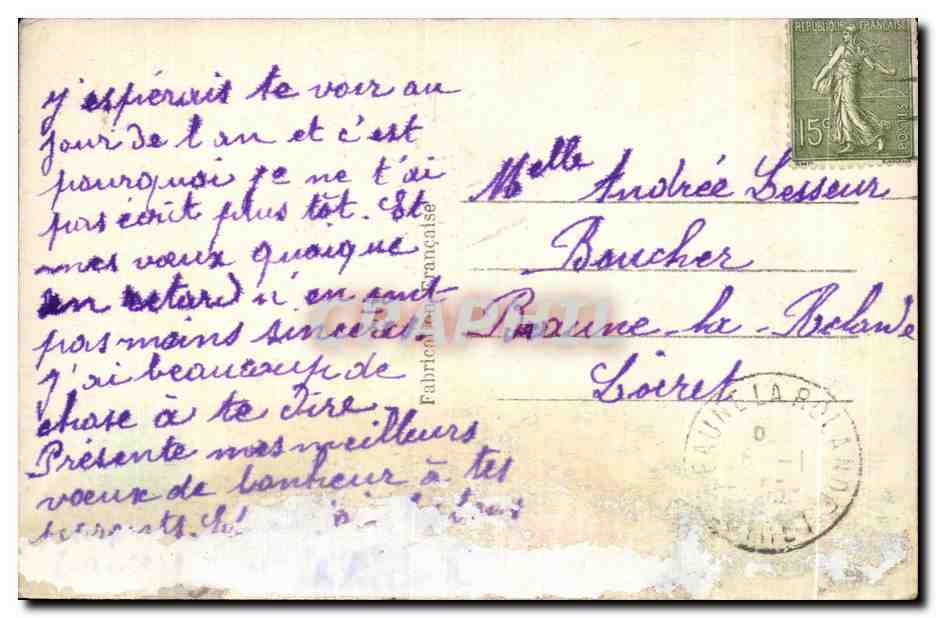 j'espérais te voir au
jour de l'an et c'est
pourquoi je ne t'ai
pas écrit plus tôt. Et
mes vœux quoique
en retard n'en sont
pas moins sincères
j'ai beaucoup de
chose à te dire
Présente mes meilleurs
vœux de bonheur à tes
parents.
Fabrication Française
CPAPHIL
REPUBLIQUE FRANÇAISE
15c
POSTES
Melle Andrée Lesseur
Boucher
Beaune-la-Rolande
Loiret
BEAUNE LA ROLANDE
LOIRET